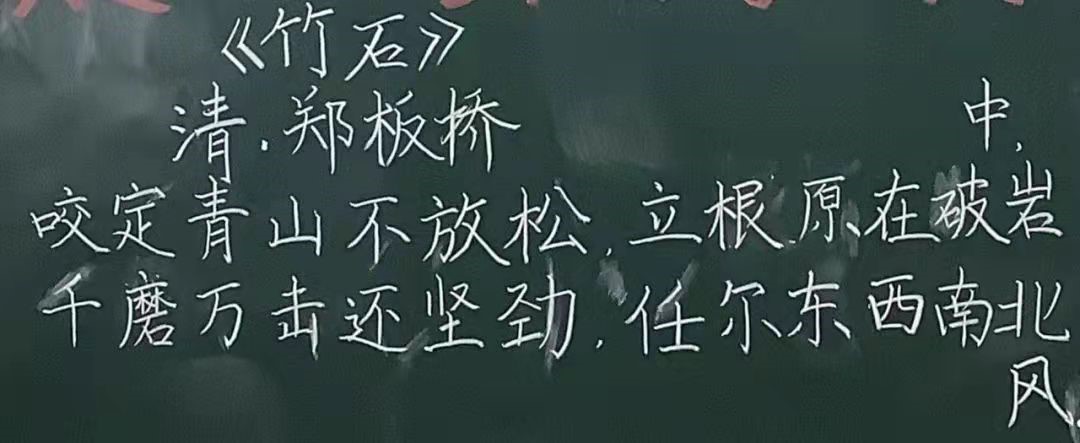 《竹石》
清.郑板桥
中,
咬定青山不放松,立根原在破岩
千磨万击还坚劲,任尔东西南北
风.